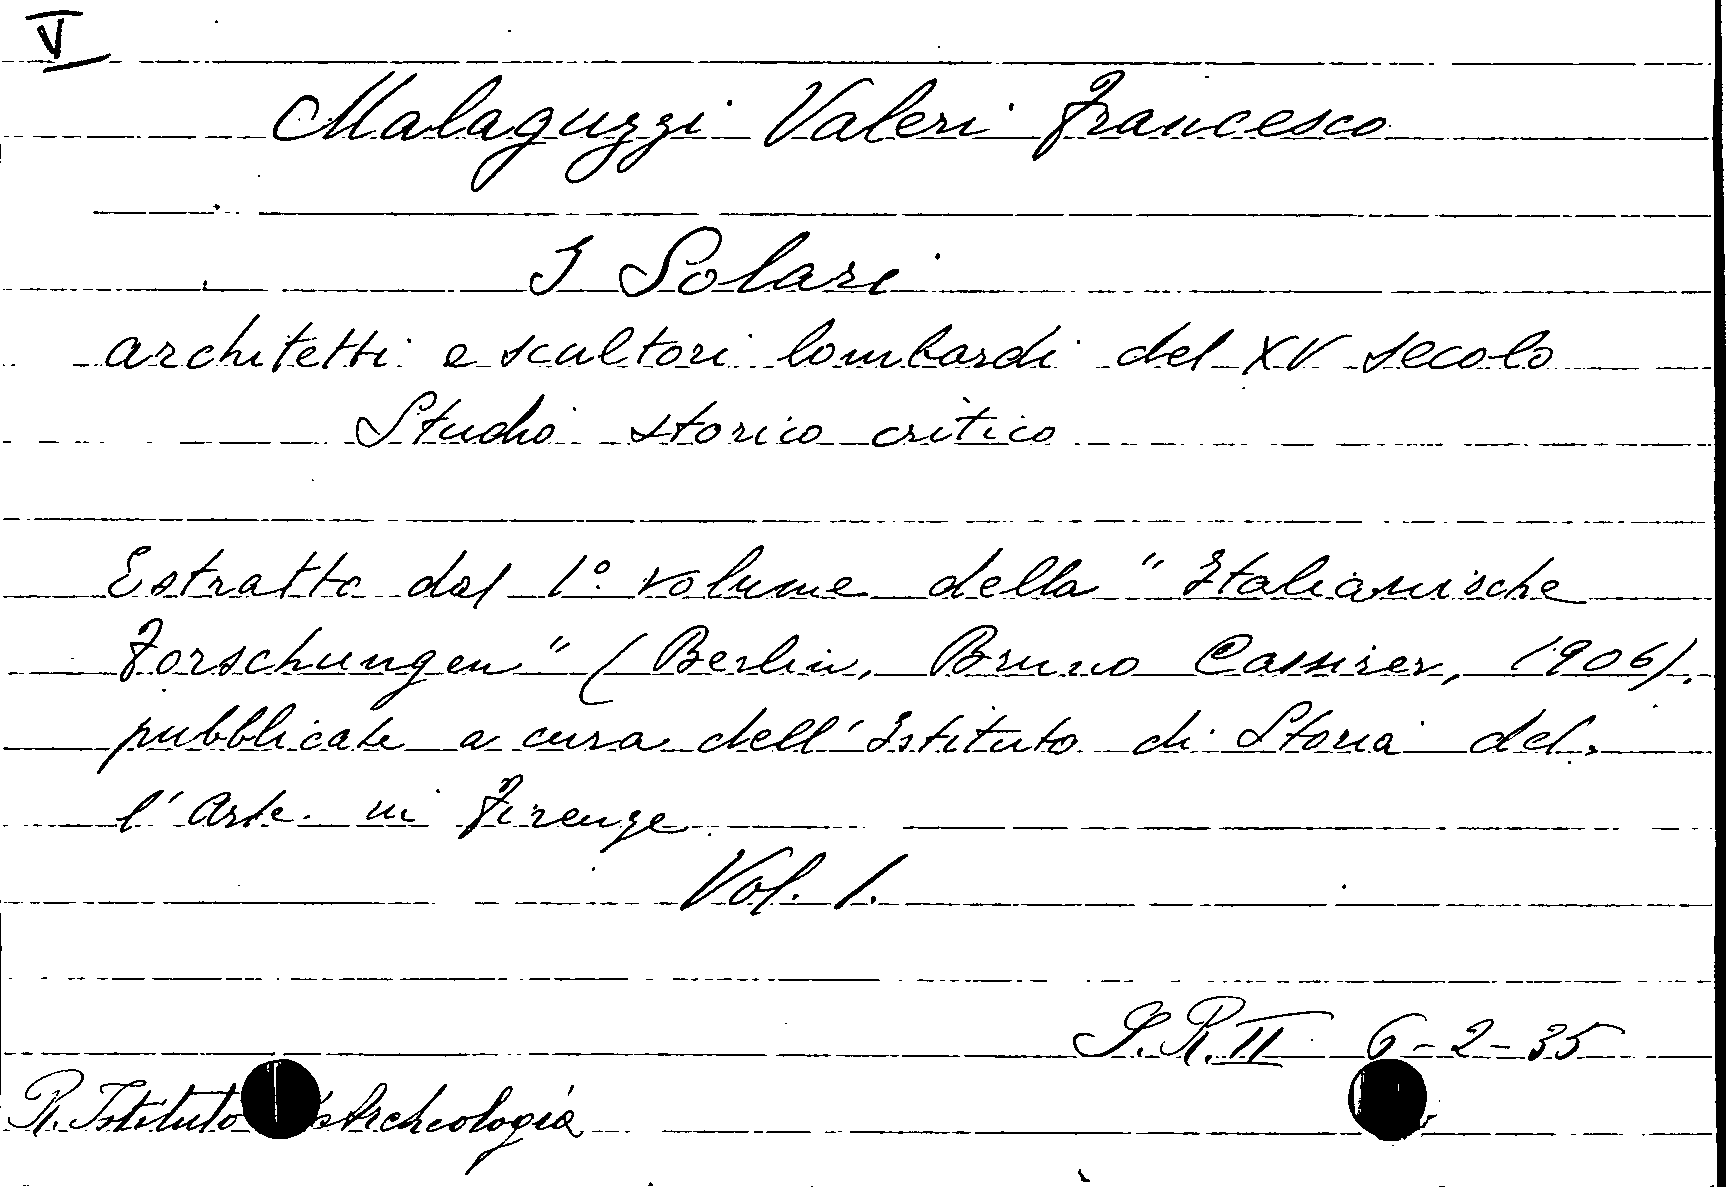 V
Malaguzzi Valeri Francesco
I Solari
architetti e scultori lombardi del XV secolo
Studio storico critico
Estratto dal 1° volume della "Italianische
Forschungen" (Berlin, Bruno Cassirer, 1906).
pubblicate a cura dell'Istituto di Storia del-
l'Arte in Firenze
Vol. 1.
S.R.II 6-2-35
R. Istituto Archeologia